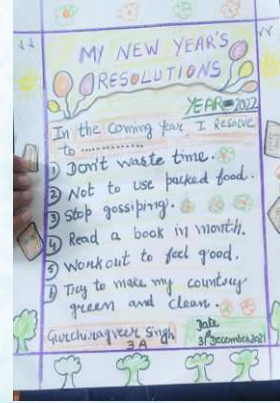 MY NEW YEAR'S
RESOLUTIONS
YEAR=2022
In the coming Year, I RESOLVE
to ..............
1 Don't waste time.
2 Not to use packed food.
3 Stop gossiping.
4 Read a book in month.
5 Workout to feel good.
6 Try to make my country
green and clean.
Gurchiragveer Singh
3 A
Date
31st December 2021